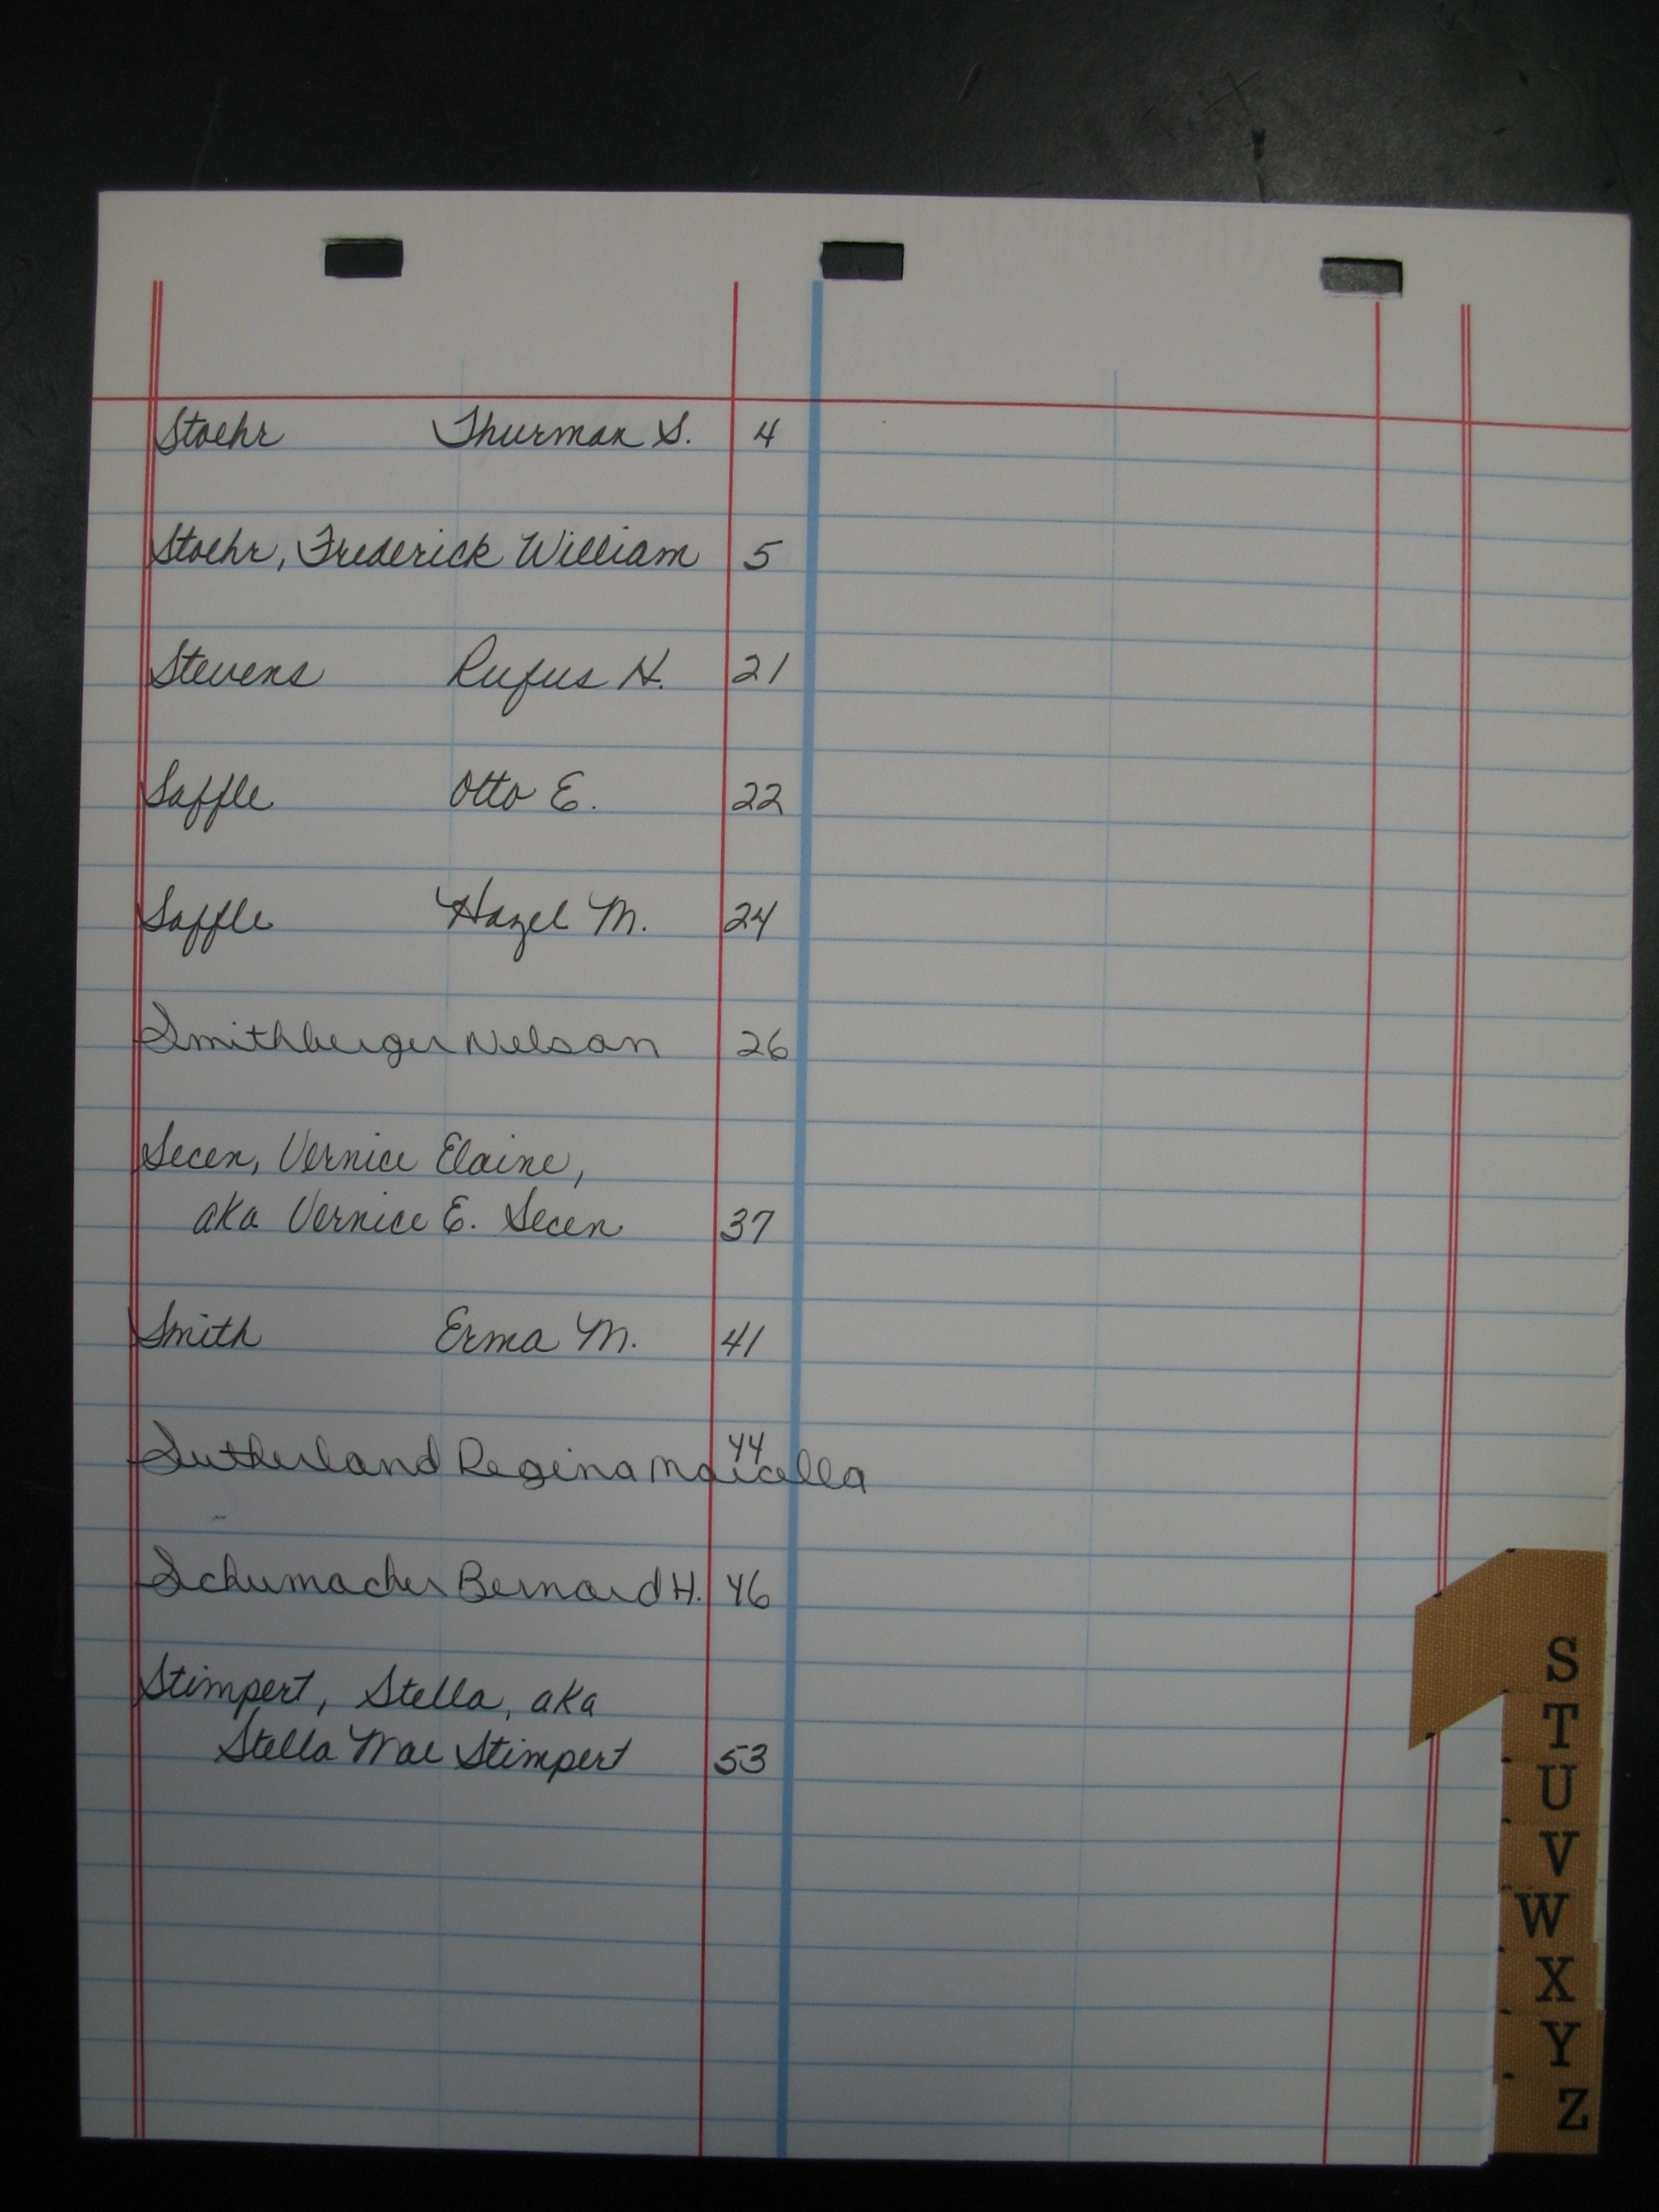 Stoehr Thurman S. 4
Stoehr, Frederick William 5
Stevens Rufus H. 21
Saffle Otto E. 22
Saffle Hazel M. 24
Smithberger Nelson 26
Secen, Vernice Elaine,
aka Vernice E. Secen 37
Smith Erma M. 41
Sutherland Regina Marcella 44
Schumacher Bernard H. 46
Stimpert, Stella, aka
Stella Mae Stimpert 53
S
T
U
V
W
X
Y
Z